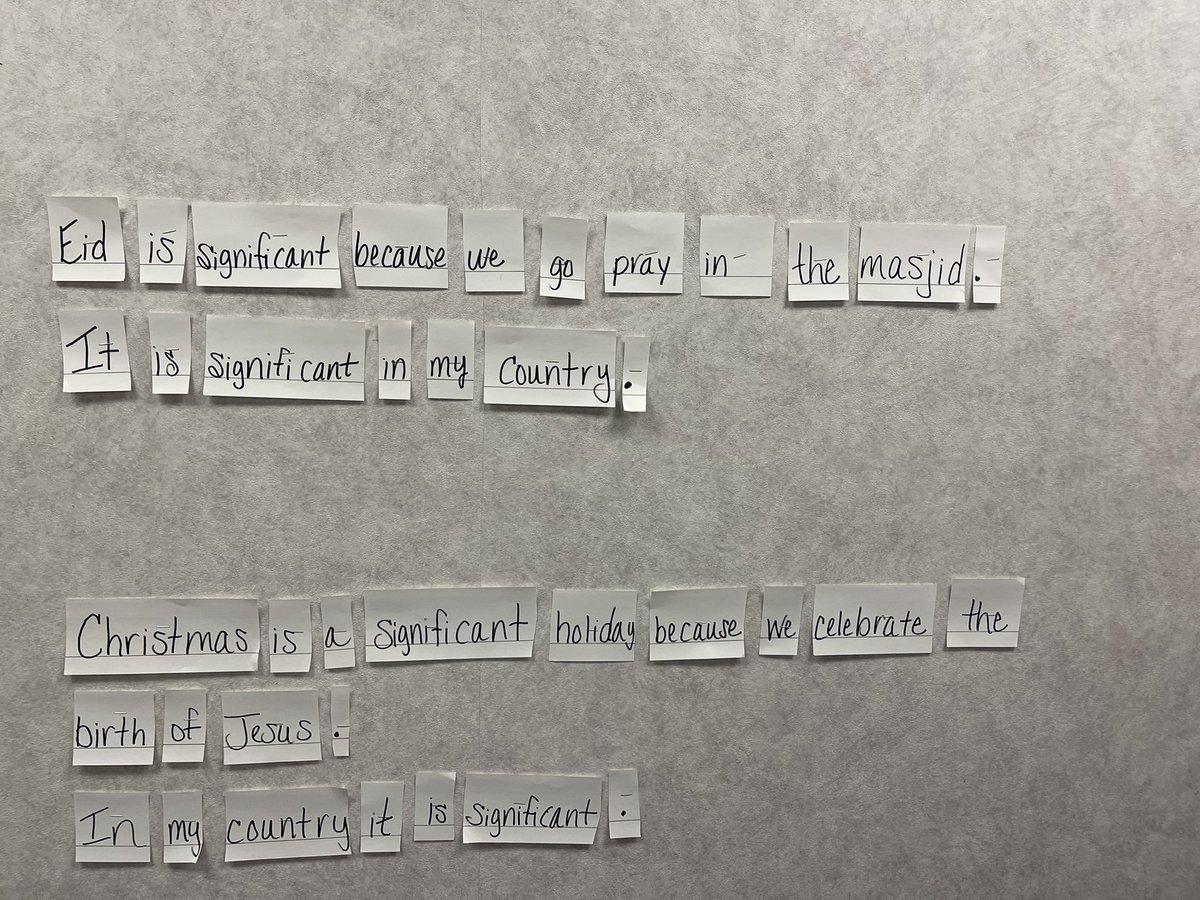 Eid is significant because we go pray in the masjid.
It is significant in my Country.
Christmas is a significant holiday because we celebrate the
birth of Jesus.
In my country it is significant.